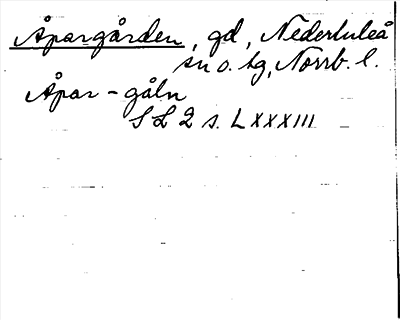 Åpargården, gd, Nederluleå
sn o. tg, Norrb. l.
Åpar-gåln
SL 2 s. LXXXIII